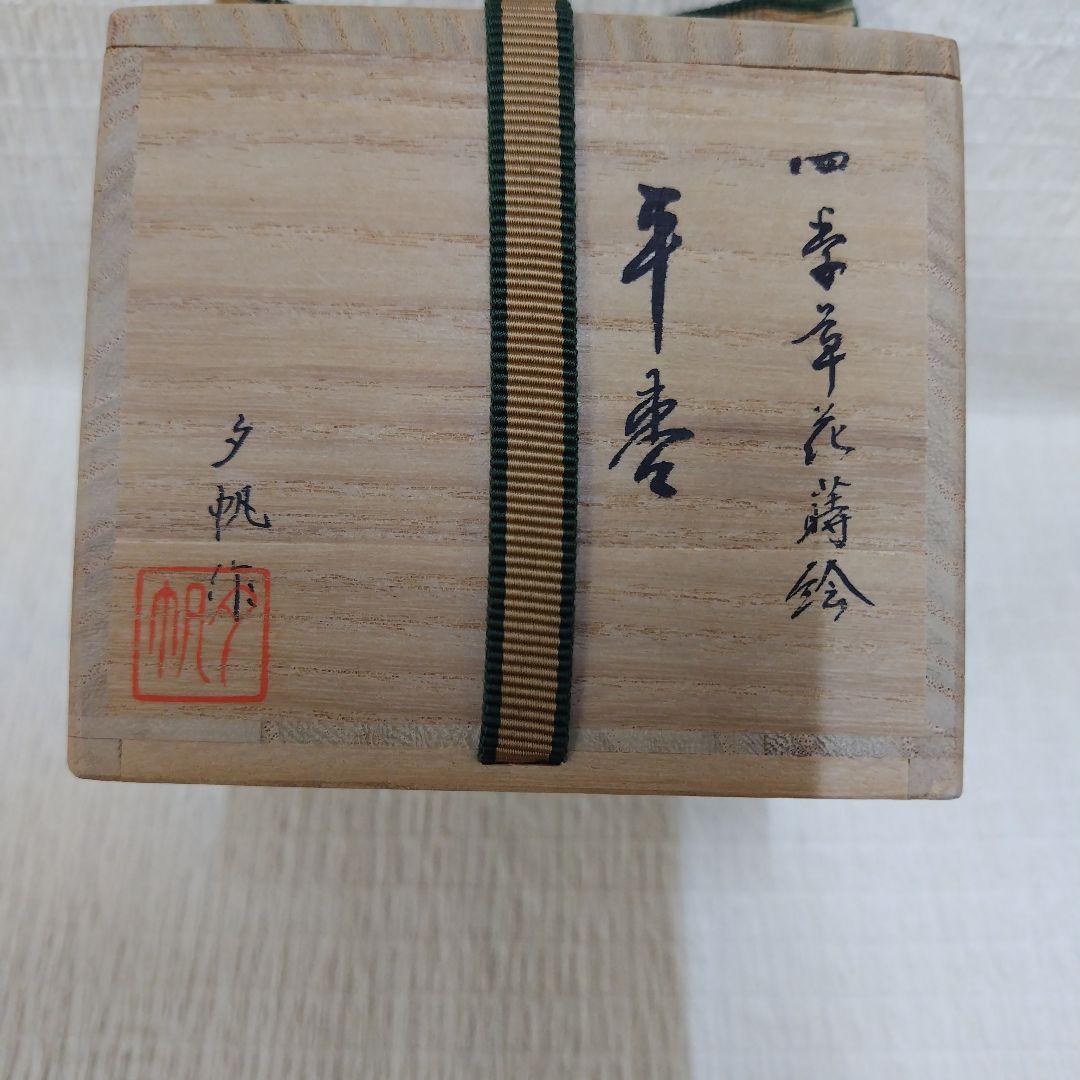 四季草花蒔絵
平棗
夕帆作
夕帆